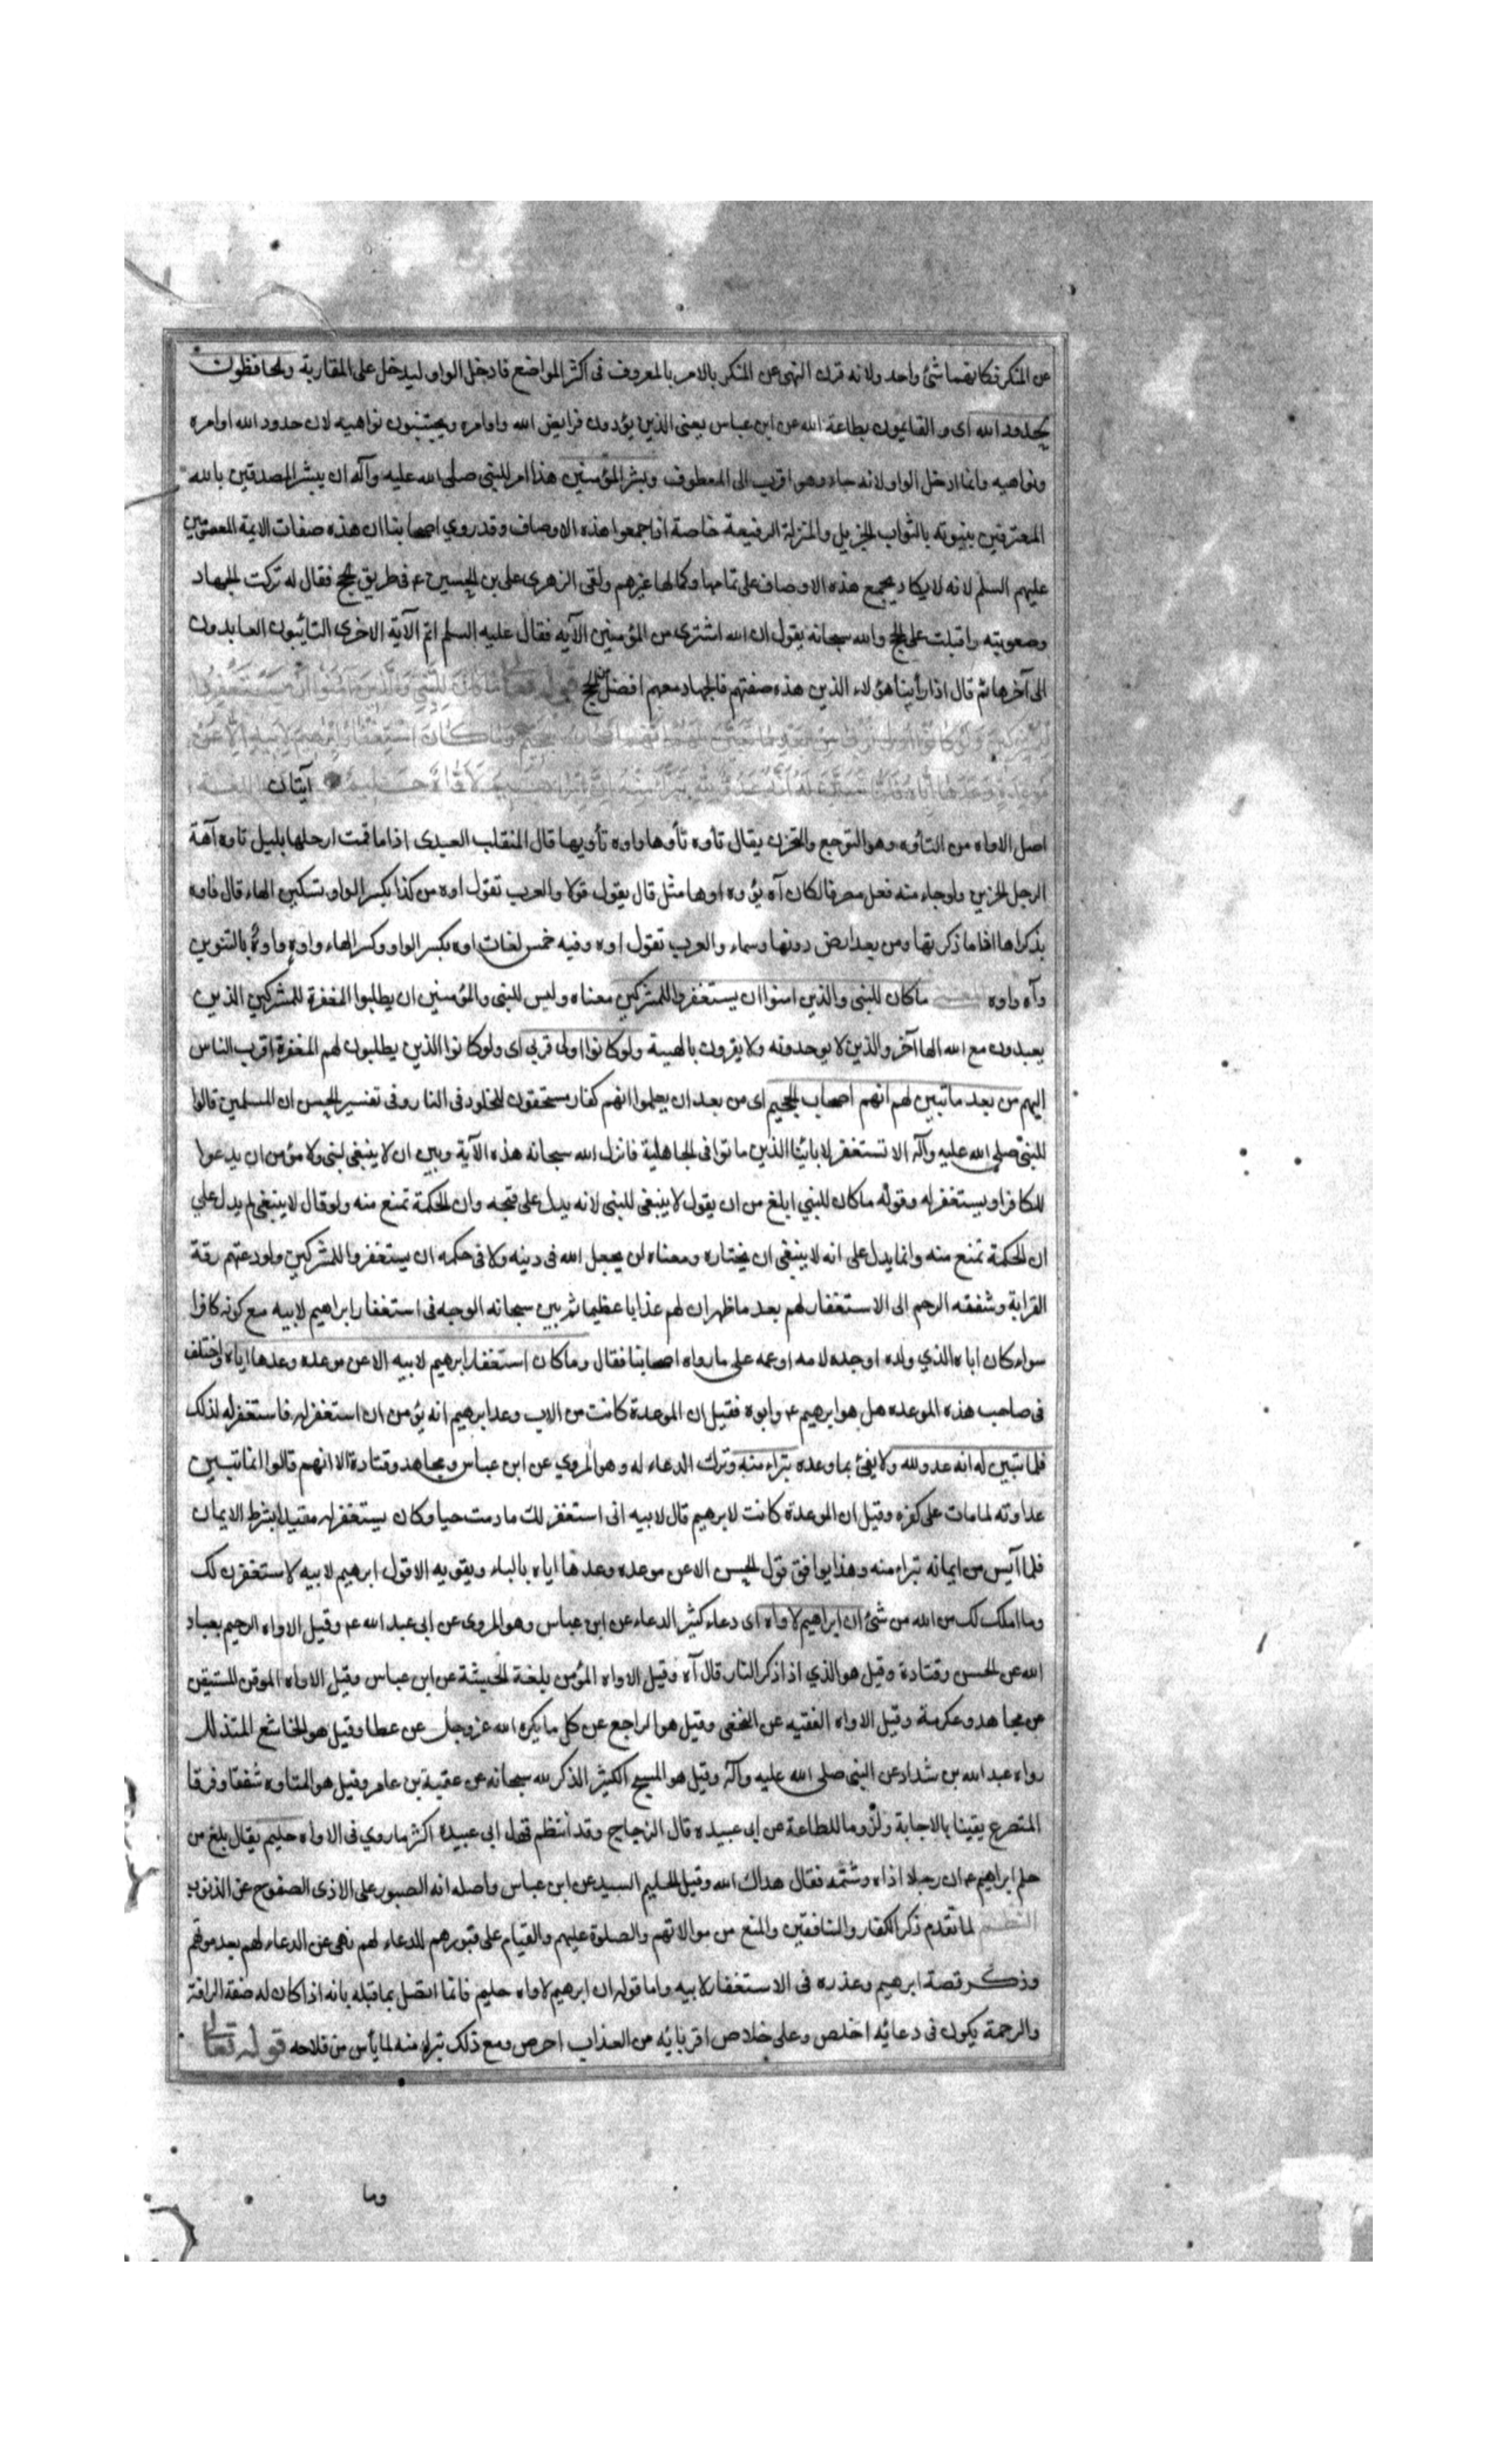 عن المنكر فكانهما شئ واحد ولانه قرن النهى عن المنكر بالامر بالمعروف فى اكثر المواضع فادخل الواو ليدخل على المقاربة والحافظون
لحدود الله اى والقايمون بطاعة الله عن ابن عباس يعنى الذين يؤدون فرايض الله واوامره ويجتنبون نواهيه لان حدود الله اوامره
ونواهيه وانما ادخل الواو لانه جاء وهو اقرب الى المعطوف وبشر المؤمنين هذا امر للنبى صلى الله عليه وآله ان يبشر المصدقين بالله
المعترفين بنبوته بالثواب الجزيل والمنزلة الرفيعة خاصة اذا جمعوا هذه الاوصاف وقد روي اصحابنا ان هذه صفات الايمة المعصومين
عليهم السلم لانه لا يكاد يجمع هذه الاوصاف على تمامها وكمالها غيرهم ولقى الزهرى على بن الحسين ع فى طريق الحج فقال له تركت الجهاد
وصعوبته واقبلت على الحج والله سبحانه يقول ان الله اشترى من المؤمنين الآيه فقال عليه السلم اتم الآية الاخرى التائبون العابدون
الى آخرها ثم قال اذا رأينا هؤلاء الذين هذه صفتهم فالجهاد معهم افضل من الحج قوله تعالى ما كان للنبي والذين آمنوا ان يستغفروا
للمشركين ولو كانوا اولى قربى من بعد ما تبين لهم انهم اصحاب الجحيم وما كان استغفار ابرهيم لابيه الا عن
موعدة وعدها اياه فلما تبين له انه عدو لله تبرأ منه ان ابرهيم لاواه حليم آيتان اللغة
اصل الاواه من التأوه وهو التوجع والتحزن يقال تأوه تأوها واوه تأويها قال المثقب العبدى اذا ما قمت ارحلها بليل تاوه آهة
الرجل الحزين ولو جاء منه فعل مصرفا لكان آه يؤوه اوها مثل قال يقول قولا والعرب تقول اوه من كذا بكسر الواو وتسكين الهاء قال فاوه
بذكراها اذا ما ذكرتها ومن بعد ارض دونها وسماء والعرب تقول اوه وفيه خمس لغات اوه بكسر الواو وكسر الهاء واوه واوه بالتنوين
وآه واوه المعنى ما كان للنبى والذين امنوا ان يستغفروا للمشركين معناه وليس للنبى والمؤمنين ان يطلبوا المغفرة للمشركين الذين
يعبدون مع الله الها آخر والذين لا يوحدونه ولا يقرون بالهيته ولو كانوا اولى قربى اى ولو كانوا الذين يطلبون لهم المغفرة اقرب الناس
اليهم من بعد ما تبين لهم انهم اصحاب الجحيم اى من بعد ان يعلموا انهم كفار مستحقون للخلود فى النار وفى تفسير الحسن ان المسلمين قالوا
للنبى صلى الله عليه وآله الا تستغفر لابائنا الذين ماتوا فى الجاهلية فانزل الله سبحانه هذه الآية وبين ان لا ينبغى لنبى ولا مؤمن ان يدعوا
للكافر او يستغفر له وقوله ما كان للنبي ابلغ من ان يقول لا ينبغى للنبى لانه يدل على قبحه وان الحكمة تمنع منه ولو قال لا ينبغى لم يدل علي
ان الحكمة تمنع منه وانما يدل على انه لا ينبغى ان يختاره ومعناه لن يجعل الله فى دينه ولا فى حكمه ان يستغفروا للمشركين ولو دعتهم رقة
القرابة وشفقه الرحم الى الاستغفار لهم بعد ما ظهر ان لهم عذابا عظيما ثم بين سبحانه الوجه فى استغفار ابراهيم لابيه مع كونه كافرا
سواء كان اباه الذي ولده او جده لامه او عمه على ما رواه اصحابنا فقال وما كان استغفار ابرهيم لابيه الا عن موعده وعدها اياه واختلف
فى صاحب هذه الموعده هل هو ابرهيم ع وابوه فقيل ان الموعدة كانت من الاب وعد ابرهيم انه يؤمن ان استغفر له فاستغفر له لذلك
فلما تبين له انه عدو لله ولا يفئ بما وعده تبراء منه وترك الدعاء له وهو المروي عن ابن عباس ومجاهد وقتادة الا انهم قالوا انما تبين
عداوته لما مات على كفره وقيل ان الموعدة كانت لابرهيم قال لابيه انى استغفر لك ما دمت حيا وكان يستغفر له مقيدا بشرط الايمان
فلما آيس من ايمانه تبراء منه وهذا يوافق قول الحسن الا عن موعده وعدها اياه بالباء ويقويه الا قول ابرهيم لابيه لاستغفرن لك
وما املك لك من الله من شئ ان ابراهيم لاواه اى دعاء كثير الدعاء عن ابن عباس وهو المروى عن ابى عبد الله ع وقيل الاواه الرحيم بعباد
الله عن الحسن وقتادة وقيل هو الذي اذا ذكر النار قال آه وقيل الاواه المؤمن بلغة الحبشة عن ابن عباس وقيل الاواه الموقن المستيقن
عن مجاهد وعكرمة وقيل الاواه الفقيه عن النخعى وقيل هو الراجع عن كل ما يكره الله عز وجل عن عطا وقيل هو الخاشع المتذلل
رواه عبد الله بن شداد عن النبى صلى الله عليه وآله وقيل هو المسبح الكثير الذكر لله سبحانه عن عقبة بن عامر وقيل هو المتاوه شفقا وفرقا
المتضرع يقينا بالاجابة ولزوما للطاعة عن ابى عبيده قال الزجاج وقد انتظم قول ابى عبيدة اكثر ما روي فى الاواه حليم يقال بلغ من
حلم ابراهيم ع ان رجلا اذاه وشتمه فقال هداك الله وقيل الحليم السيد عن ابن عباس واصله انه الصبور على الاذى الصفوح عن الذنوب
النظم لما تقدم ذكر الكفار والمنافقين والمنع من موالاتهم والصلوة عليهم والقيام على قبورهم للدعاء لهم نهى عن الدعاء لهم بعد موتهم
وذكر قصة ابرهيم وعذره فى الاستغفار لابيه واما قوله ان ابرهيم لاواه حليم فانما اتصل بما قبله بانه اذا كان له صفة الرافة
والرحمة يكون فى دعائه اخلص وعلى خلاص اقربائه من العذاب احرص ومع ذلك تبراء منه لما يأس من فلاحه قوله تعالى
وما